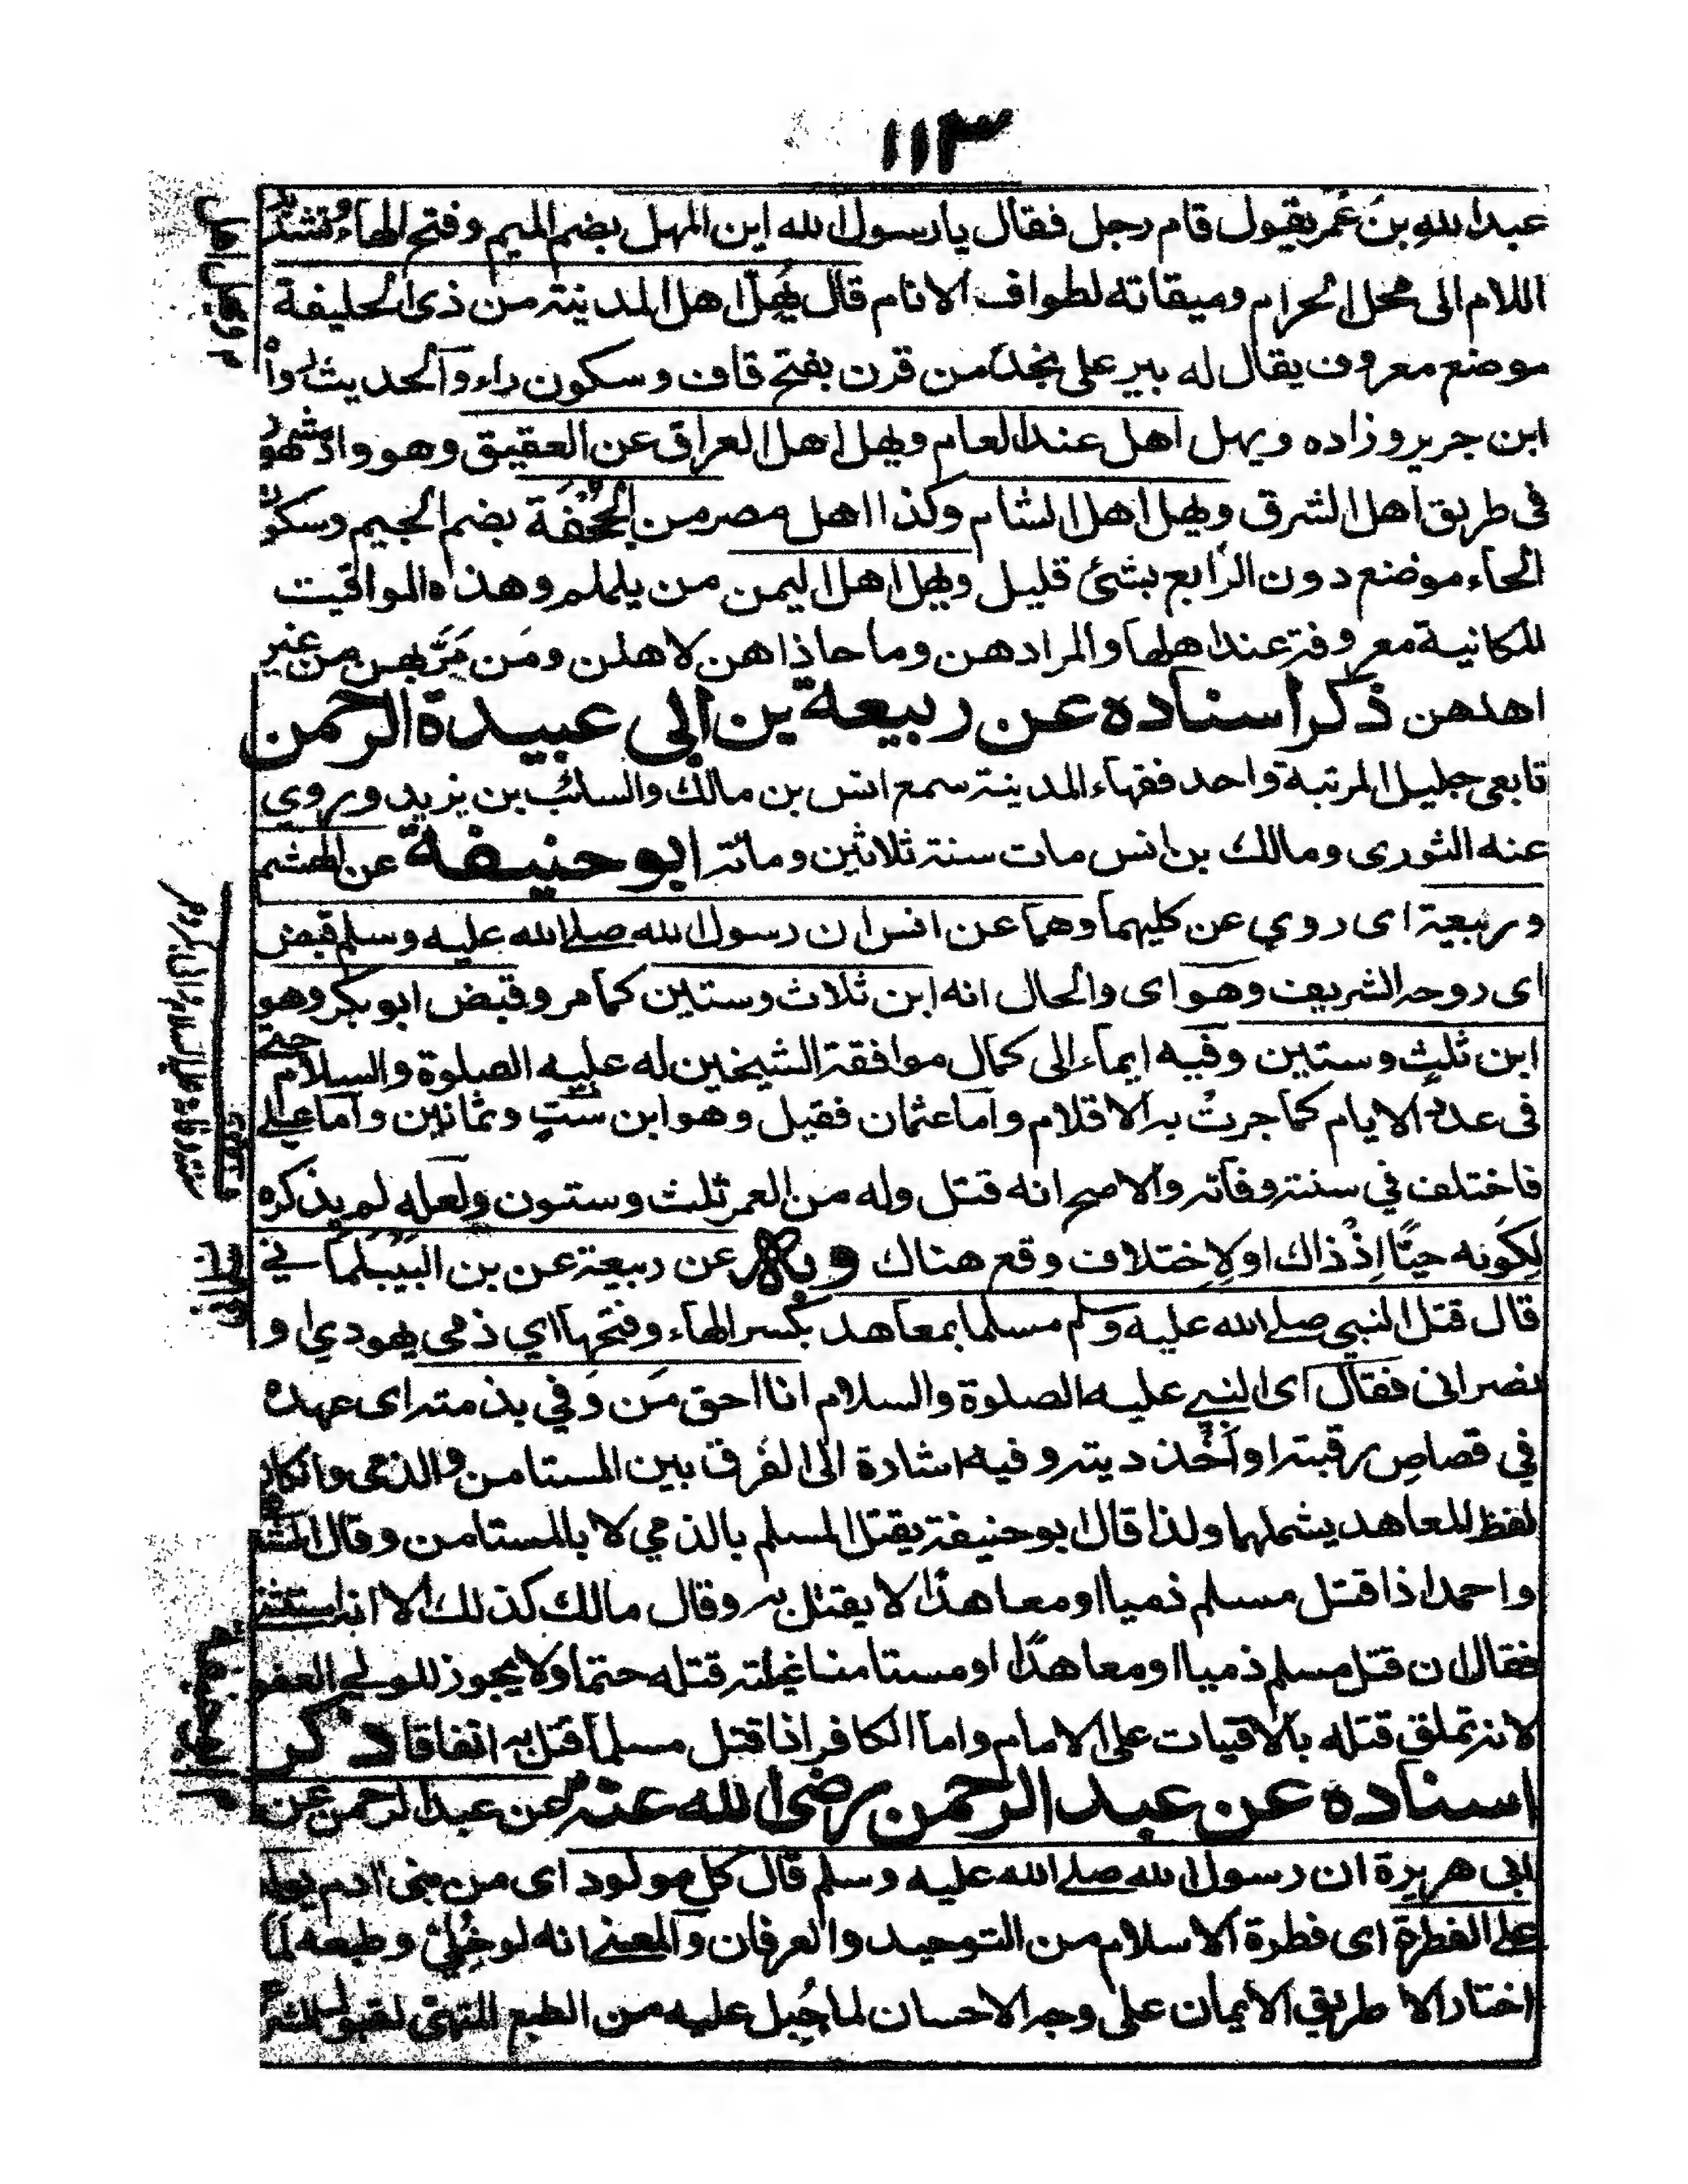 ١١٣
عبدالله بنُ عُمَر يقول قام رجل فقال يا رسول الله اين المهل بضم الميم وفتح الهاء وتشديد
اللام الى محل احرام وميقاته لطواف الانام قال يُهِلّ اهل المدينة من ذى الحليفة
موضع معروف يقال له بير على نجد من قرن بفتح قاف وسكون راء والحديث روا
ابن جرير وزاده ويهل اهل عند العام ويهل اهل العراق عن العقيق وهو واد مشهور
فى طريق اهل الشرق ويهل اهل الشام وكذا اهل مصر من الجُحْفَة بضم الجيم وسكون
الحاء موضع دون الرابع بشئ قليل ويهل اهل اليمن من يلملم وهذه المواقيت
المكانية معروفة عند اهلها والمراد هن وما حاذاهن لاهلن ومَن مَرَّ بهن من غير
اهلهن ذكر اسناده عن ربيعة بن ابى عبيدة الرحمن
تابعى جليل المرتبة واحد فقهاء المدينة سمع انس بن مالك والسائب بن يزيد وروي
عنه الثورى ومالك بن انس مات سنة ثلاثين ومائة ابو حنيفة عن الهشم
وربيعة اى روي عن كليهما وهما عن انس ان رسول الله صلے الله عليه وسلم قبض
اى روحه الشريف وهو اى والحال انه ابن ثلاث وستين كما مر وقبض ابو بكر وهو
ابن ثلثٍ وستين وفيه ايماء الى كمال موافقة الشيخين له عليه الصلوة والسلام حتے
فى عدة الايام كما جرتْ به الاقلام واما عثمان فقيل وهو ابن ستٍ وثمانين واما علے
فاختلف في سنة وفاته والاصح انه قتل وله من العمر ثلث وستون ولعله لم يذكره
لِكَونه حيًّا اِذْ ذاك او لاِختلاف وقع هناك وبه عن ربيعة عن بن البَيْلَمَاني
قال قتل النبي صلے الله عليه وسلم مسلما بمعاهد بكسر الهاء وفتحها اي ذمى يهودي او
نصرانى فقال اى النبے عليه الصلوة والسلام انا احق مَن وَفي بذمته اى عهده
في قصاصِ رقبته او اَخْذ ديته وفيه اشارة الى الفرق بين المستامن والذمى وان كان
لفظ المعاهد يشملهما ولذا قال ابو حنيفة يقتل المسلم بالذمي لا بالمستامن وقال
واحمد اذا قتل مسلم ذميا او معاهدًا لا يقتل به وقال مالك كذلك الا انه استثنے
فقال ان قتل مسلم ذميا او معاهدًا او مستامنا غيلة قتله حتما ولا يجوز للولي العفو
لانه تملق قتله بالاقيات على الامام واما الكافر اذا قتل مسلما قتل به اتفاقا ذكر
اسناده عن عبد الرحمن رضى الله عنه عن عبد الرحمن عن
ابى هريرة ان رسول الله صلے الله عليه وسلم قال كل مولود اى من بنى ادم يولد
على الفطرة اى فطرة الاسلام من التوحيد والعرفان والمعنے انه لو خُلِيَ وطبعه لما
اختار الا طريق الايمان على وجه الاحسان لما جُبِل عليه من الطبع المتهئ لقبول